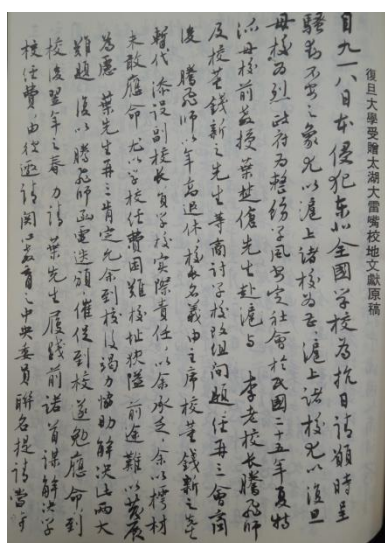 復旦大學受贈太湖大雷嘴校地文獻原稿
自九一八日本侵犯东北全國学校為抗日請願時呈
騷動不安之象尤以滬上諸校為甚滬上諸校尤以復旦
母校为烈政府为整飭學風安定社會於民國二十五年夏特
派母校前教授葉楚傖先生赴滬与 李老校長騰飛師
及校董錢新之先生等商討学校改組問題经再三會商
後 騰飛師以年高退休校長名義由主席校董錢新之先生
暫代添設副校長負学校實際責任以余承乏余以樗材
未敢應命尤以学校经費困難校址狹隘前途難以發展
為慮 葉先生再三肯定允余到校後竭力協助解决此兩大
難題 復以騰飛師函電迭頒催促到校遂勉應命到
校後翌年之春力請葉先生履踐前諾首謀解決学
校经費由於邀請関心教育之中央委員聯名提請當